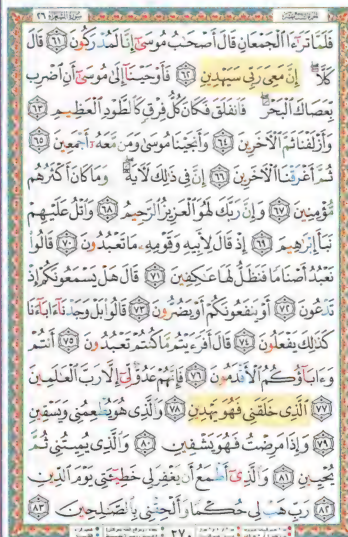 سورة الشعراء ٢٦
فَلَمَّا تَرَٰٓءَا ٱلْجَمْعَانِ قَالَ أَصْحَـٰبُ مُوسَىٰٓ إِنَّا لَمُدْرَكُونَ ٦١ قَالَ
كَلَّآ إِنَّ مَعِىَ رَبِّى سَيَهْدِينِ ٦٢ فَأَوْحَيْنَآ إِلَىٰ مُوسَىٰٓ أَنِ ٱضْرِب
بِّعَصَاكَ ٱلْبَحْرَ فَٱنفَلَقَ فَكَانَ كُلُّ فِرْقٍ كَٱلطَّوْدِ ٱلْعَظِيمِ ٦٣
وَأَزْلَفْنَا ثَمَّ ٱلْـَٔاخَرِينَ ٦٤ وَأَنجَيْنَا مُوسَىٰ وَمَن مَّعَهُۥٓ أَجْمَعِينَ ٦٥
ثُمَّ أَغْرَقْنَا ٱلْـَٔاخَرِينَ ٦٦ إِنَّ فِى ذَٰلِكَ لَـَٔايَةً وَمَا كَانَ أَكْثَرُهُم
مُّؤْمِنِينَ ٦٧ وَإِنَّ رَبَّكَ لَهُوَ ٱلْعَزِيزُ ٱلرَّحِيمُ ٦٨ وَٱتْلُ عَلَيْهِمْ
نَبَأَ إِبْرَٰهِيمَ ٦٩ إِذْ قَالَ لِأَبِيهِ وَقَوْمِهِۦ مَا تَعْبُدُونَ ٧٠ قَالُوا۟
نَعْبُدُ أَصْنَامًا فَنَظَلُّ لَهَا عَـٰكِفِينَ ٧١ قَالَ هَلْ يَسْمَعُونَكُمْ إِذْ
تَدْعُونَ ٧٢ أَوْ يَنفَعُونَكُمْ أَوْ يَضُرُّونَ ٧٣ قَالُوا۟ بَلْ وَجَدْنَآ ءَابَآءَنَا
كَذَٰلِكَ يَفْعَلُونَ ٧٤ قَالَ أَفَرَءَيْتُم مَّا كُنتُمْ تَعْبُدُونَ ٧٥ أَنتُمْ
وَءَابَآؤُكُمُ ٱلْأَقْدَمُونَ ٧٦ فَإِنَّهُمْ عَدُوٌّ لِّىٓ إِلَّا رَبَّ ٱلْعَـٰلَمِينَ
٧٧ ٱلَّذِى خَلَقَنِى فَهُوَ يَهْدِينِ ٧٨ وَٱلَّذِى هُوَ يُطْعِمُنِى وَيَسْقِينِ
٧٩ وَإِذَا مَرِضْتُ فَهُوَ يَشْفِينِ ٨٠ وَٱلَّذِى يُمِيتُنِى ثُمَّ
يُحْيِينِ ٨١ وَٱلَّذِىٓ أَطْمَعُ أَن يَغْفِرَ لِى خَطِيٓـَٔتِى يَوْمَ ٱلدِّينِ
٨٢ رَبِّ هَبْ لِى حُكْمًا وَأَلْحِقْنِى بِٱلصَّـٰلِحِينَ ٨٣
٣٧٠